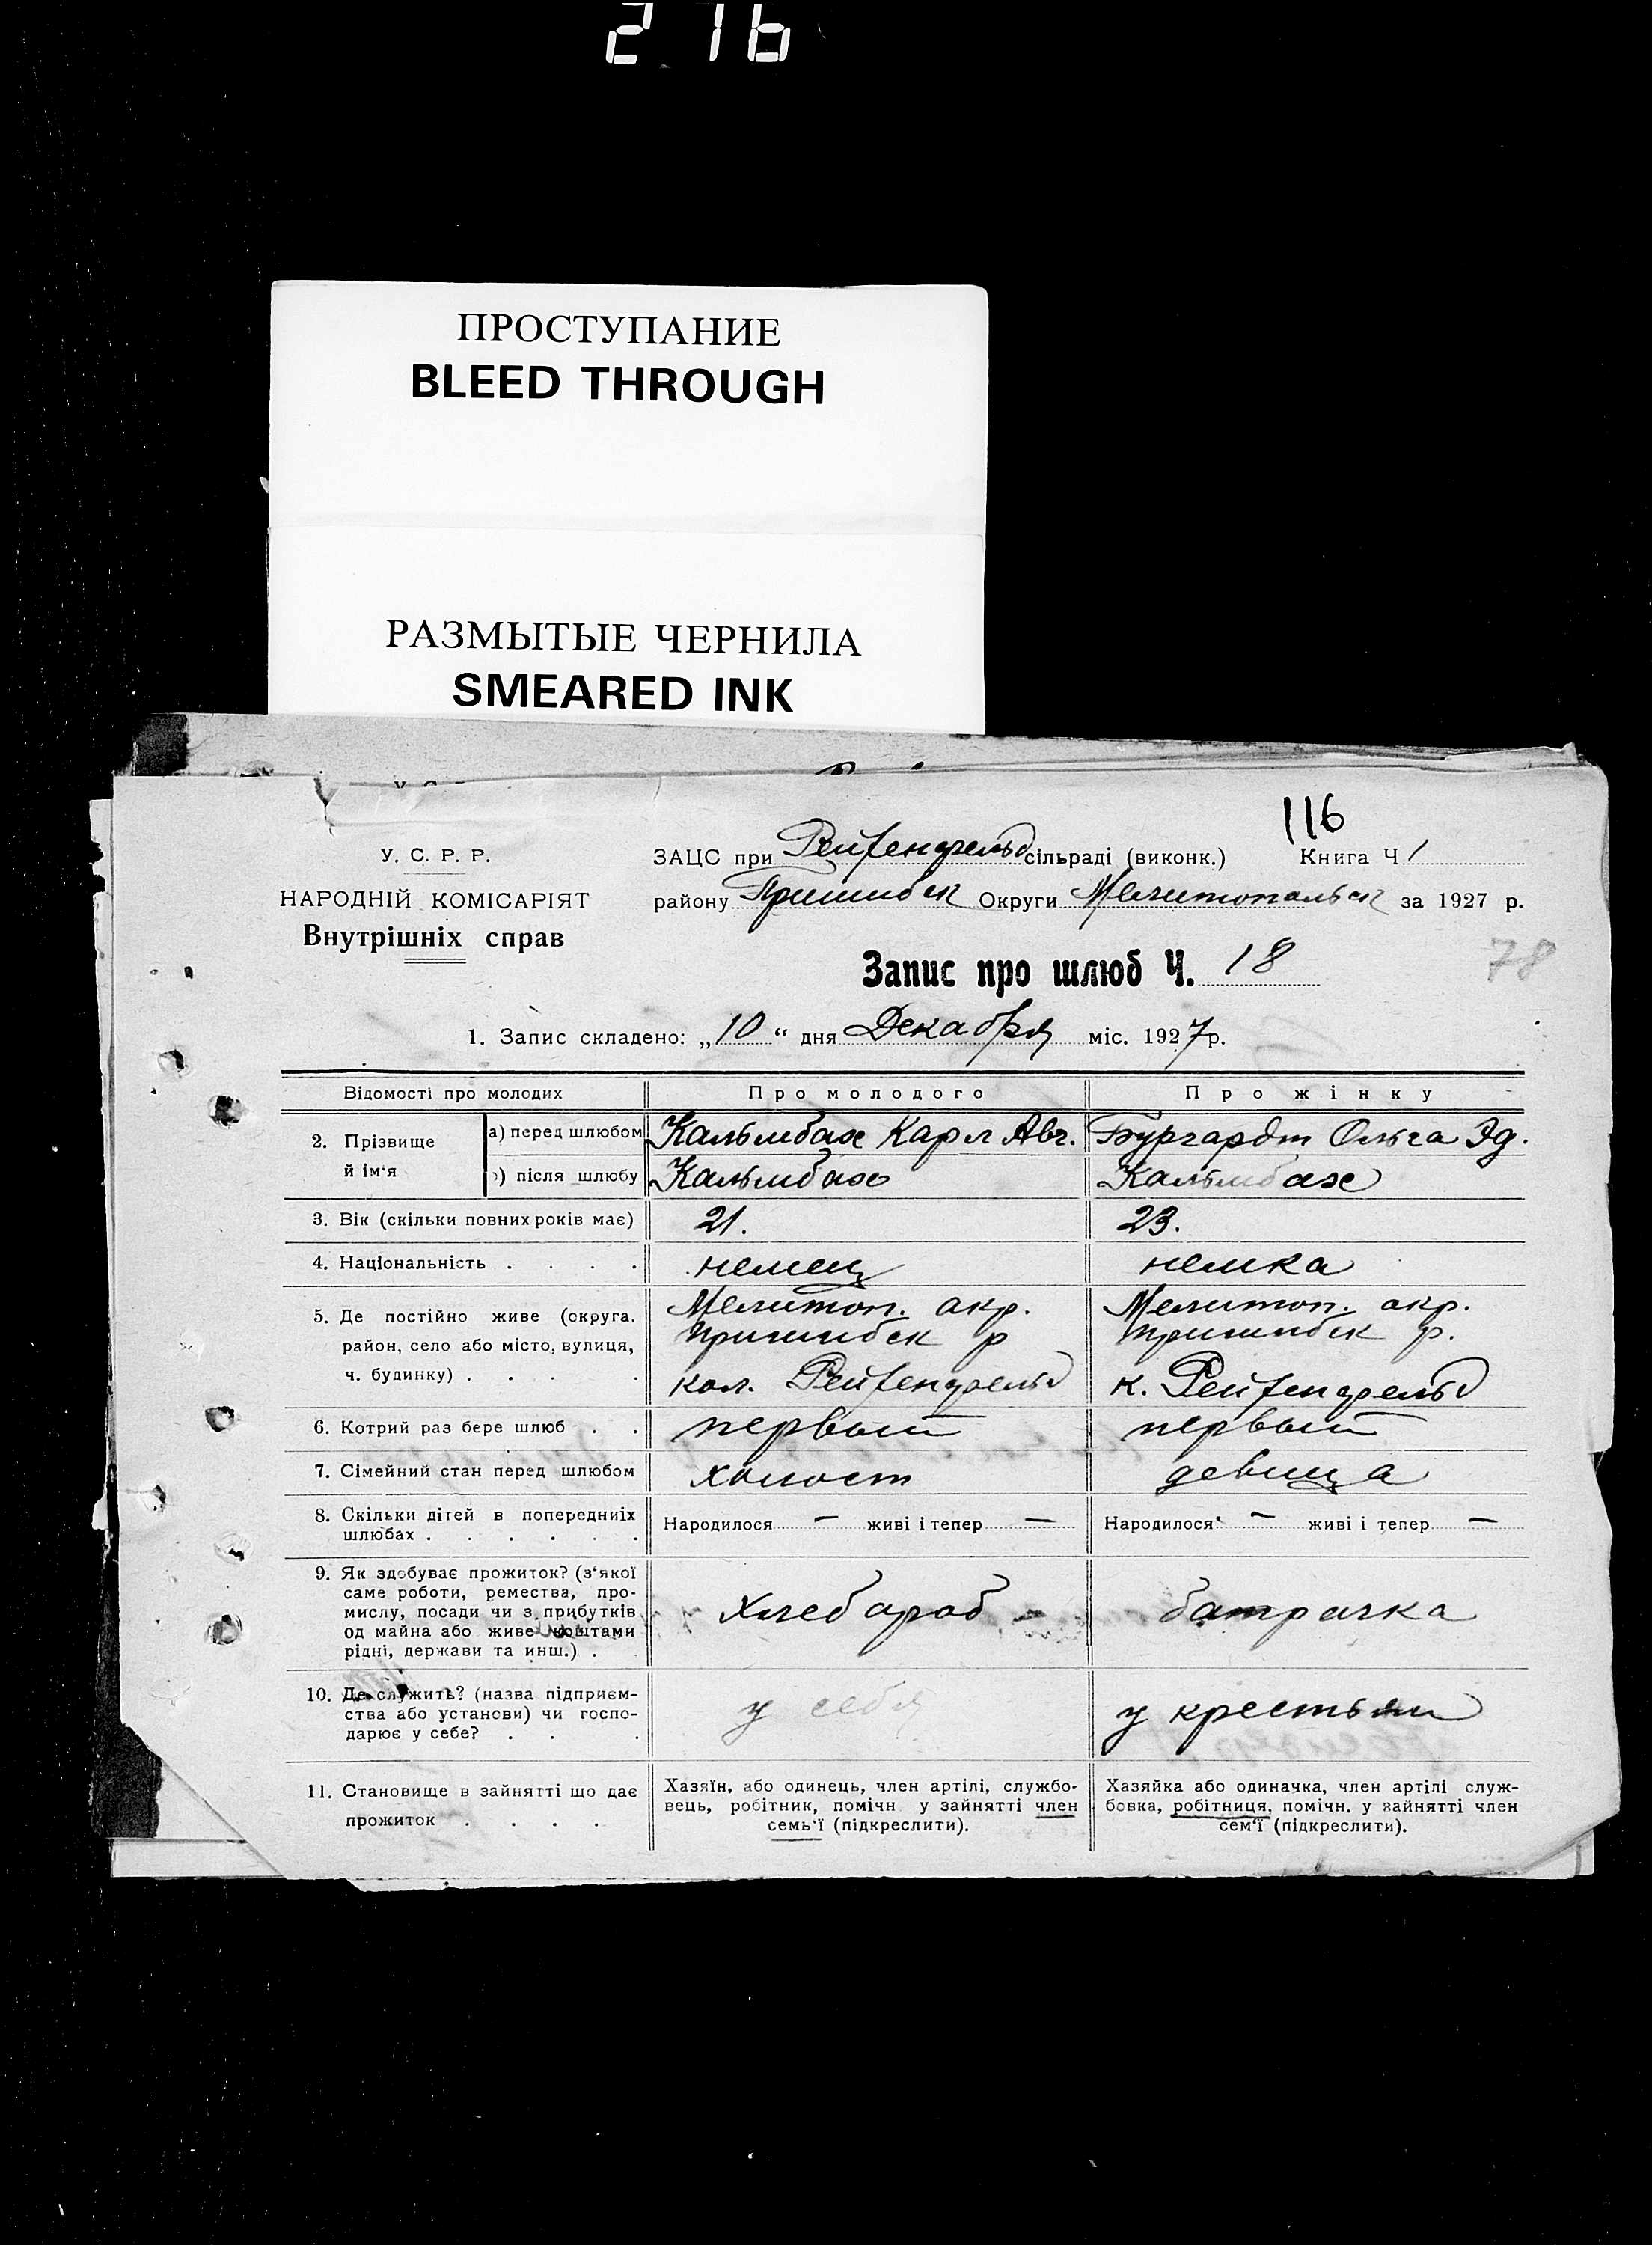 216
ПРОСТУПАНИЕ
BLEED THROUGH
РАЗМЫТЫЕ ЧЕРНИЛА
SMEARED INK
116
У. С. Р. Р.
НАРОДНІЙ КОМІСАРІЯТ
Внутрішніх справ
ЗАЦС при Рейхенфельд сільраді (виконк.) Книга Ч 1
району Пришибск Округи Мелитопольск за 1927 р.
Запис про шлюб Ч. 18
78
1. Запис складено: „10“ дня Декабря міс. 1927 р.
Відомості про молодих Про молодого Про жінку
2. Прізвище й ім'я а) перед шлюбом Кальмбах Карл Авг. Бургардт Ольга Эд.
б) після шлюбу Кальмбах Кальмбах
3. Вік (скільки повних років має) 21. 23.
4. Національність . . . . немец немка
5. Де постійно живе (округа, район, село або місто, вулиця, ч. будинку) . . . .
Мелитоп. окр.
Пришибск р
кол. Рейхенфельд
Мелитоп. окр.
Пришибск р.
к. Рейхенфельд
6. Котрий раз бере шлюб . . первый первый
7. Сімейний стан перед шлюбом холост девица
8. Скільки дітей в попередніх шлюбах . . . . . . Народилося — живі і тепер — Народилося — живі і тепер —
9. Як здобуває прожиток? (з'якої
саме роботи, ремества, про-
мислу, посади чи з прибутків
од майна або живе коштами
рідні, держави та инш.) .
хлебороб батрачка
10. Де служить? (назва підприєм-
ства або установи) чи госпо-
дарює у себе? . . .
у себя у крестьян
11. Становище в зайнятті що дає
прожиток . . . .
Хазяїн, або одинець, член артілі, службо-
вець, робітник, помічн у зайнятті член
семь'ї (підкреслити).
Хазяйка або одиначка, член артілі служ-
бовка, робітниця, помічн. у зайнятті член
сем'ї (підкреслити).